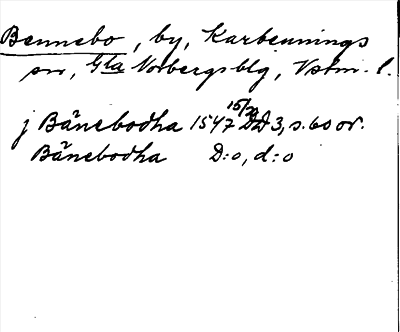 Bennebo, by, Karbennings
sn, Gla Norbergsblg, Vstm. l.
j Bänebodha 1547 15/2 DD 3, s. 60 or.
Bänebodha D:o, d:o